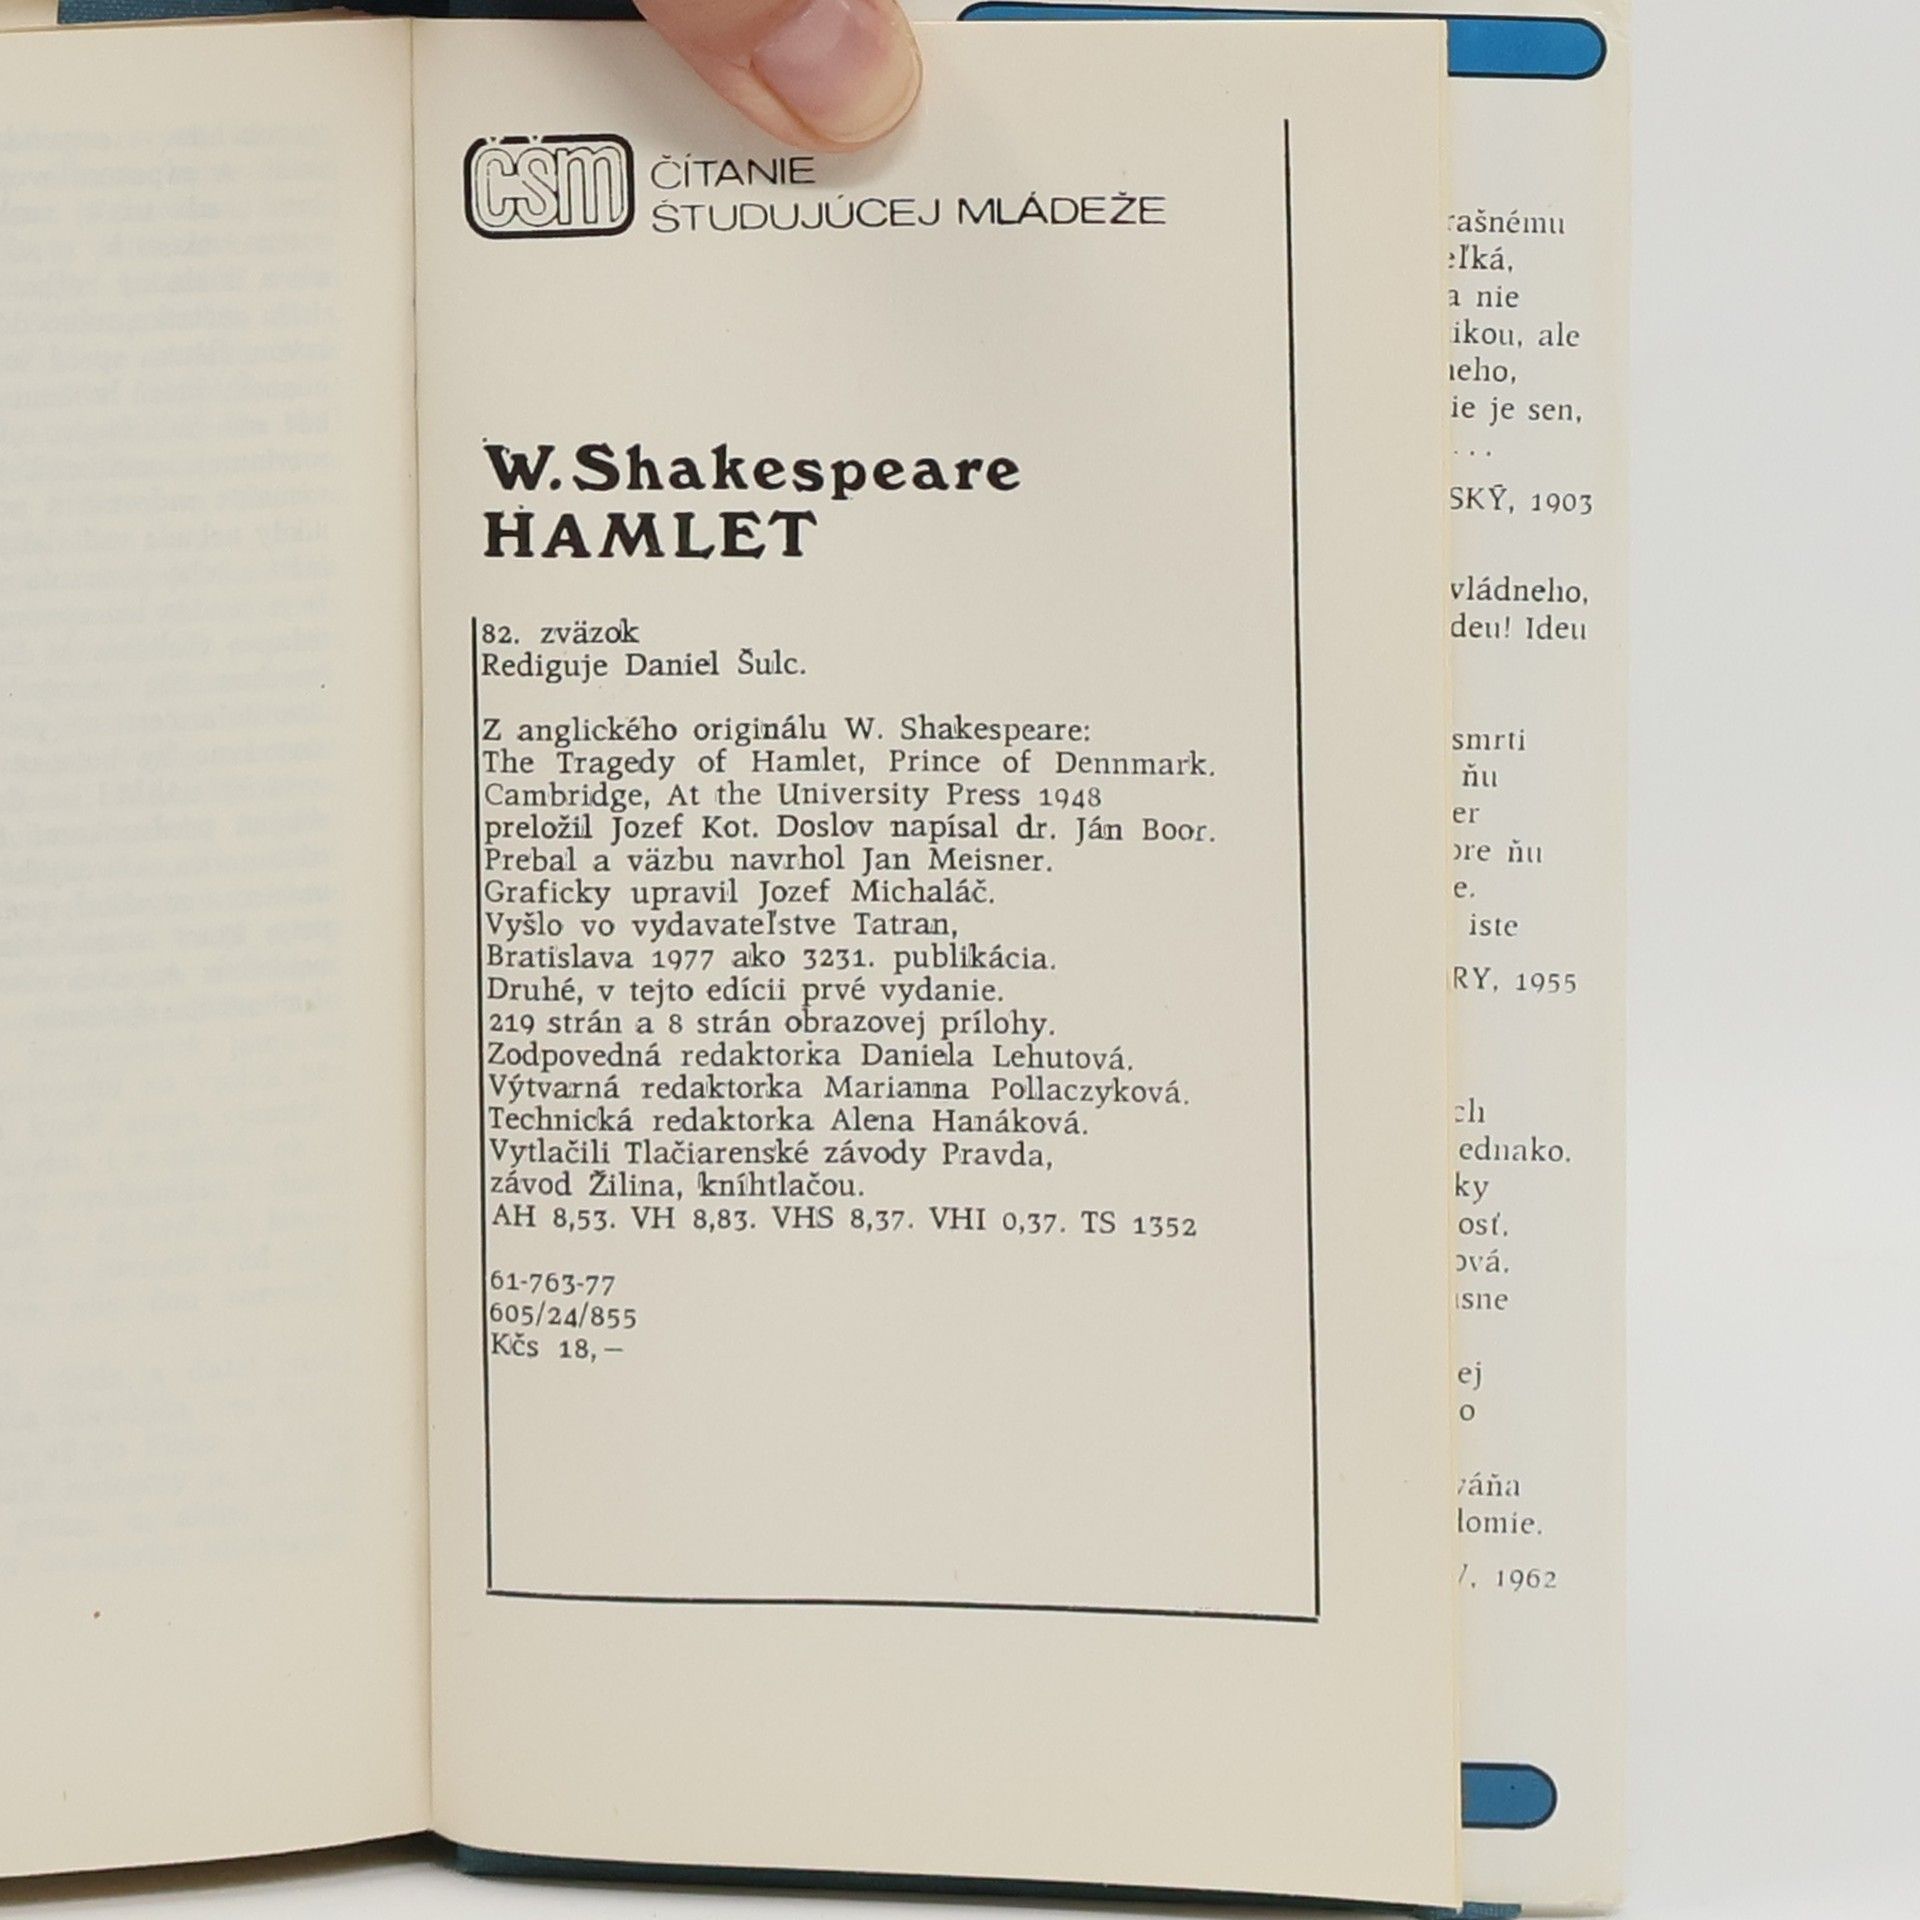 čšm ČÍTANIE
ŠTUDUJÚCEJ MLÁDEŽE
W. Shakespeare
HAMLET
82. zväzok
Rediguje Daniel Šulc.
Z anglického originálu W. Shakespeare:
The Tragedy of Hamlet, Prince of Dennmark.
Cambridge, At the University Press 1948
preložil Jozef Kot. Doslov napísal dr. Ján Boor.
Prebal a väzbu navrhol Jan Meisner.
Graficky upravil Jozef Michaláč.
Vyšlo vo vydavateľstve Tatran,
Bratislava 1977 ako 3231. publikácia.
Druhé, v tejto edícii prvé vydanie.
219 strán a 8 strán obrazovej prílohy.
Zodpovedná redaktorka Daniela Lehutová.
Výtvarná redaktorka Marianna Pollaczyková.
Technická redaktorka Alena Hanáková.
Vytlačili Tlačiarenské závody Pravda,
závod Žilina, kníhtlačou.
AH 8,53. VH 8,83. VHS 8,37. VHI 0,37. TS 1352
61-763-77
605/24/855
Kčs 18,—
rašnému
eľká,
a nie
ikou, ale
neho,
ie je sen,
...
SKÝ, 1903
vládneho,
deu! Ideu
smrti
ňu
er
ore ňu
e.
iste
RY, 1955
ch
ednako.
ky
osť.
ová.
sne
ej
o
váňa
domie.
, 1962